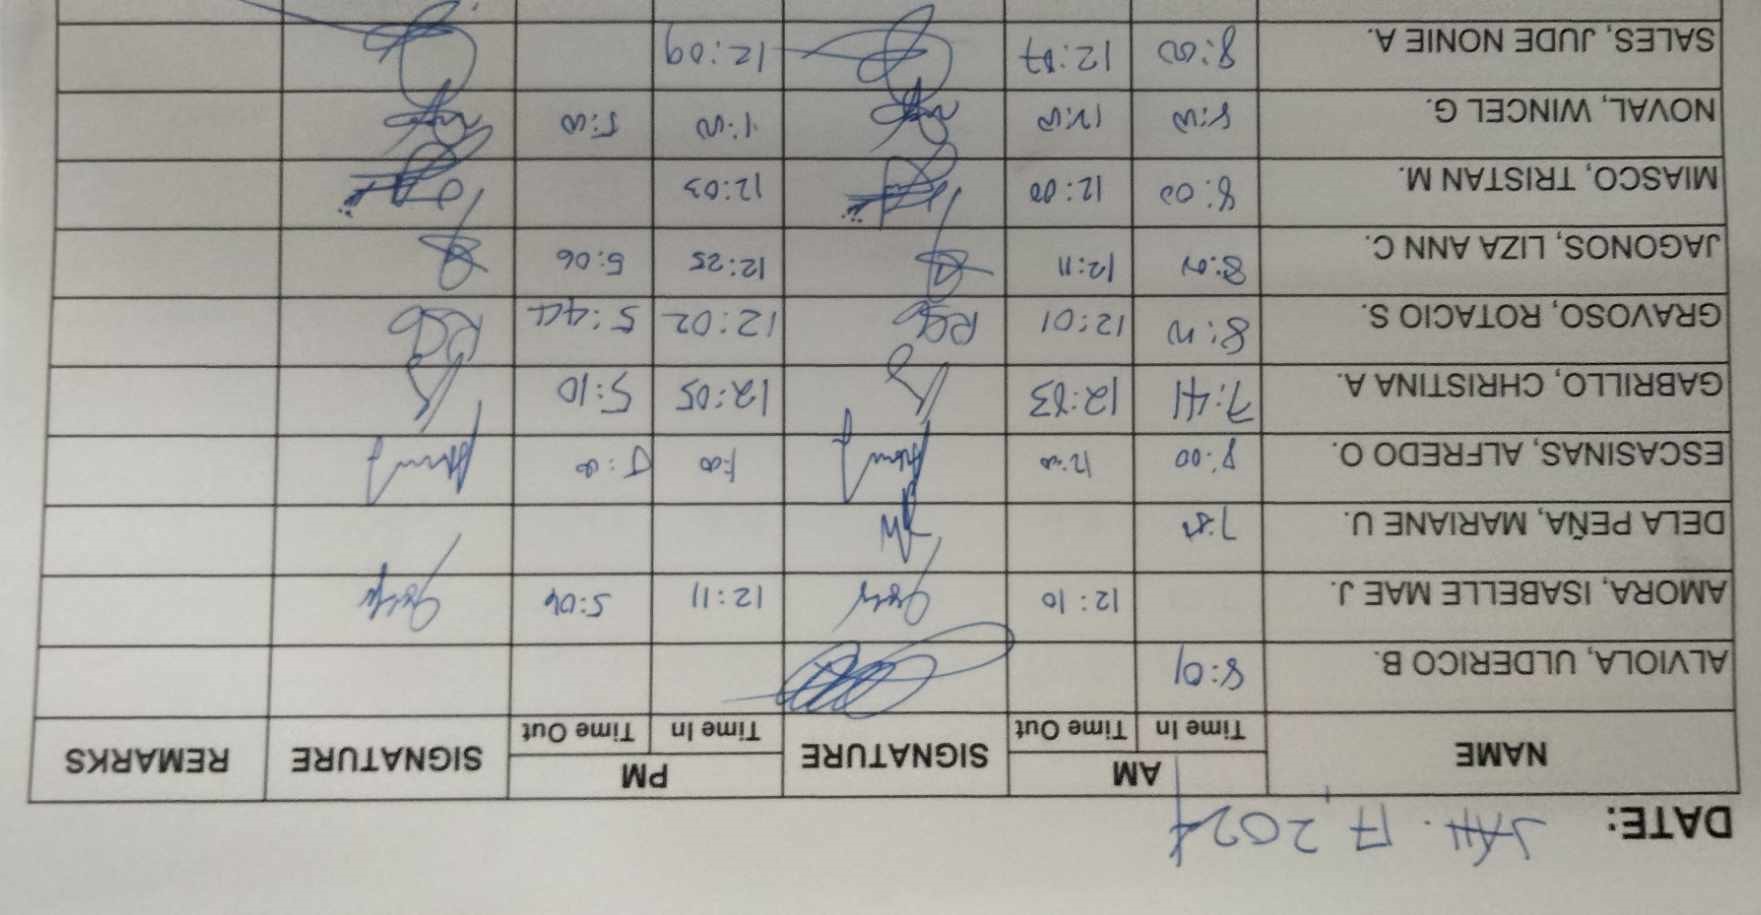 DATE: JAN. 17, 2024
NAME AM SIGNATURE PM SIGNATURE REMARKS
Time In Time Out Time In Time Out
ALVIOLA, ULDERICO B. 8:01
AMORA, ISABELLE MAE J. 12:10 12:11 5:06
DELA PEÑA, MARIANE U.
ESCASINAS, ALFREDO O. 8:00 12:00 1:00 5:00
GABRILLO, CHRISTINA A. 7:41 12:03 12:05 5:10
GRAVOSO, ROTACIO S. 12:01 12:02 5:44
JAGONOS, LIZA ANN C. 12:11 12:25 5:06
MIASCO, TRISTAN M. 8:00 12:00 12:03
NOVAL, WINCEL G. 8:00 12:00 1:00 5:00
SALES, JUDE NONIE A. 8:00 12:07 12:09